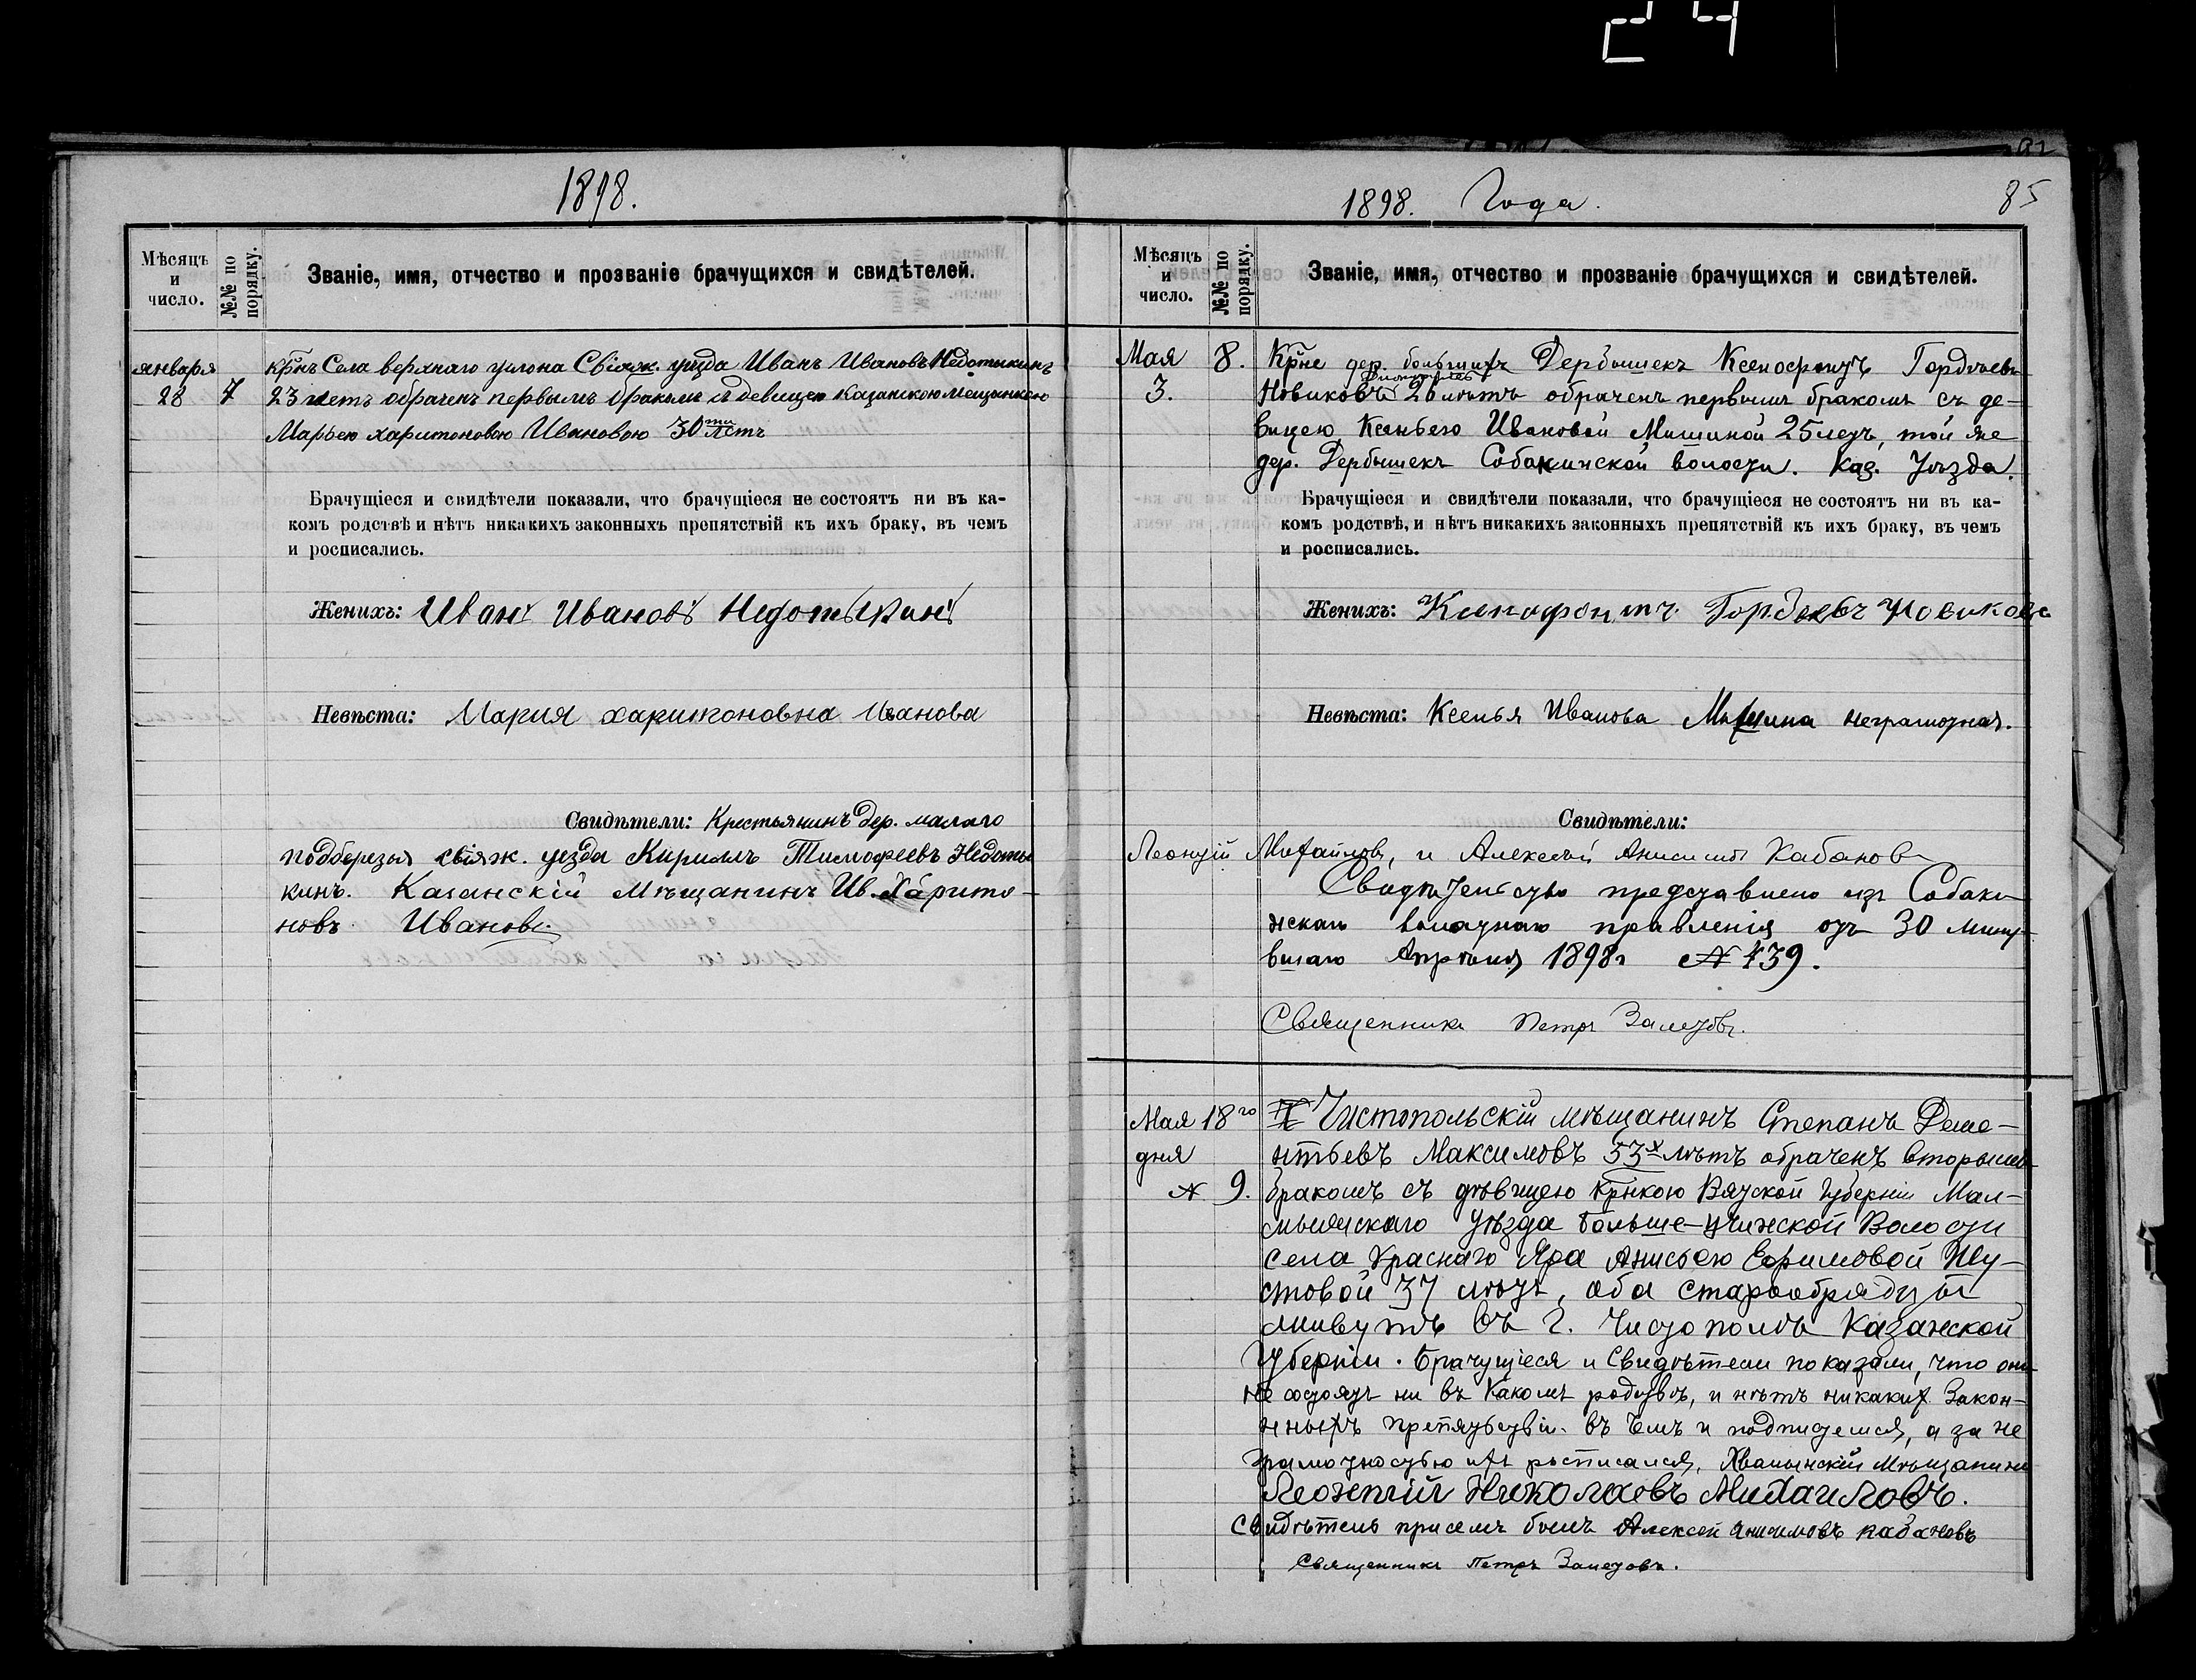 24
1898.
Мѣсяцъ и число.
№№ по порядку.
Званіе, имя, отчество и прозваніе брачущихся и свидѣтелей.
января 28
7
крнъ Села верхнаго услона Свіяж. уѣзда Иванъ Ивановъ Недотыкинъ
23 летъ обраченъ первымъ бракомъ съ девицею Казанскою Мещанкою
Марьею харитоновою Ивановою 30ти летъ
Брачущіеся и свидѣтели показали, что брачущіеся не состоятъ ни въ ка-
комъ родствѣ и нѣтъ никакихъ законныхъ препятствій къ ихъ браку, въ чемъ
и росписались.
Женихъ: Иванъ Ивановъ Недотыкинъ
Невѣста: Мария харитоновна Иванова
Свидѣтели: Крестьянинъ дер. малаго
подберезья свіяж. уезда Кириллъ Тимофеевъ Недоты
кинъ. Казанскій Мѣщанинъ Ив. Харито-
новъ Ивановъ.
1898. Года.
85
Мѣсяцъ и число.
№№ по порядку.
Званіе, имя, отчество и прозваніе брачущихся и свидѣтелей.
Мая 3.
8.
Крне дер. большихъ Дербышекъ Ксенофонтъ Гордѣевъ
Новиковъ 26 лѣтъ обраченъ первымъ бракомъ съ де-
вицею Ксеньею Ивановой Мишиной 25 летъ, той же
дер. Дербышекъ Собакинской волости. Каз. Уѣзда.
Брачущіеся и свидѣтели показали, что брачущіеся не состоятъ ни въ ка-
комъ родствѣ, и нѣтъ никакихъ законныхъ препятствій къ ихъ браку, въ чемъ
и росписались.
Женихъ: Ксенофонтъ Гордеевъ Новиковъ
Невѣста: Ксенья Иванова Мишина неграмотная.
Свидѣтели:
Леонтій Михайловъ, и Алексѣй Анисимовъ Кабановъ
Свидѣтельство представлено изъ Собаки
нскаго волостнаго правленія отъ 30 мину-
вшаго Апрѣля 1898 г № 439.
Священникъ Петръ Залетовъ.
Мая 18го дня
№ 9.
Чистопольскій мѣщанинъ Степанъ Деме-
нтьевъ Максимовъ 53х лѣтъ обраченъ вторымъ
бракомъ съ дѣвицею крнкою Вятской Губерніи Мал-
мыжскаго Уѣзда Больше-Учинской Волости
села Краснаго Яра Анисьею Ефимовой Шу-
стовой 37 лѣтъ, оба старообрядцы
живутъ въ г. Чистополѣ Казанской
Губерніи. Брачущіеся и Свидѣтели показали, что они
не состоятъ ни въ какомъ родствѣ, и нѣтъ никаких Закон-
ныхъ препятствій. въ чемъ и подпишемся, а за не
грамотностью ихъ росписался, Хвалынскій Мѣщанинъ
Леонтій Николаевъ Михаиловъ.
Свидѣтель присемъ былъ Алексей Анисимовъ кабановъ
Священникъ Петръ Залетовъ.